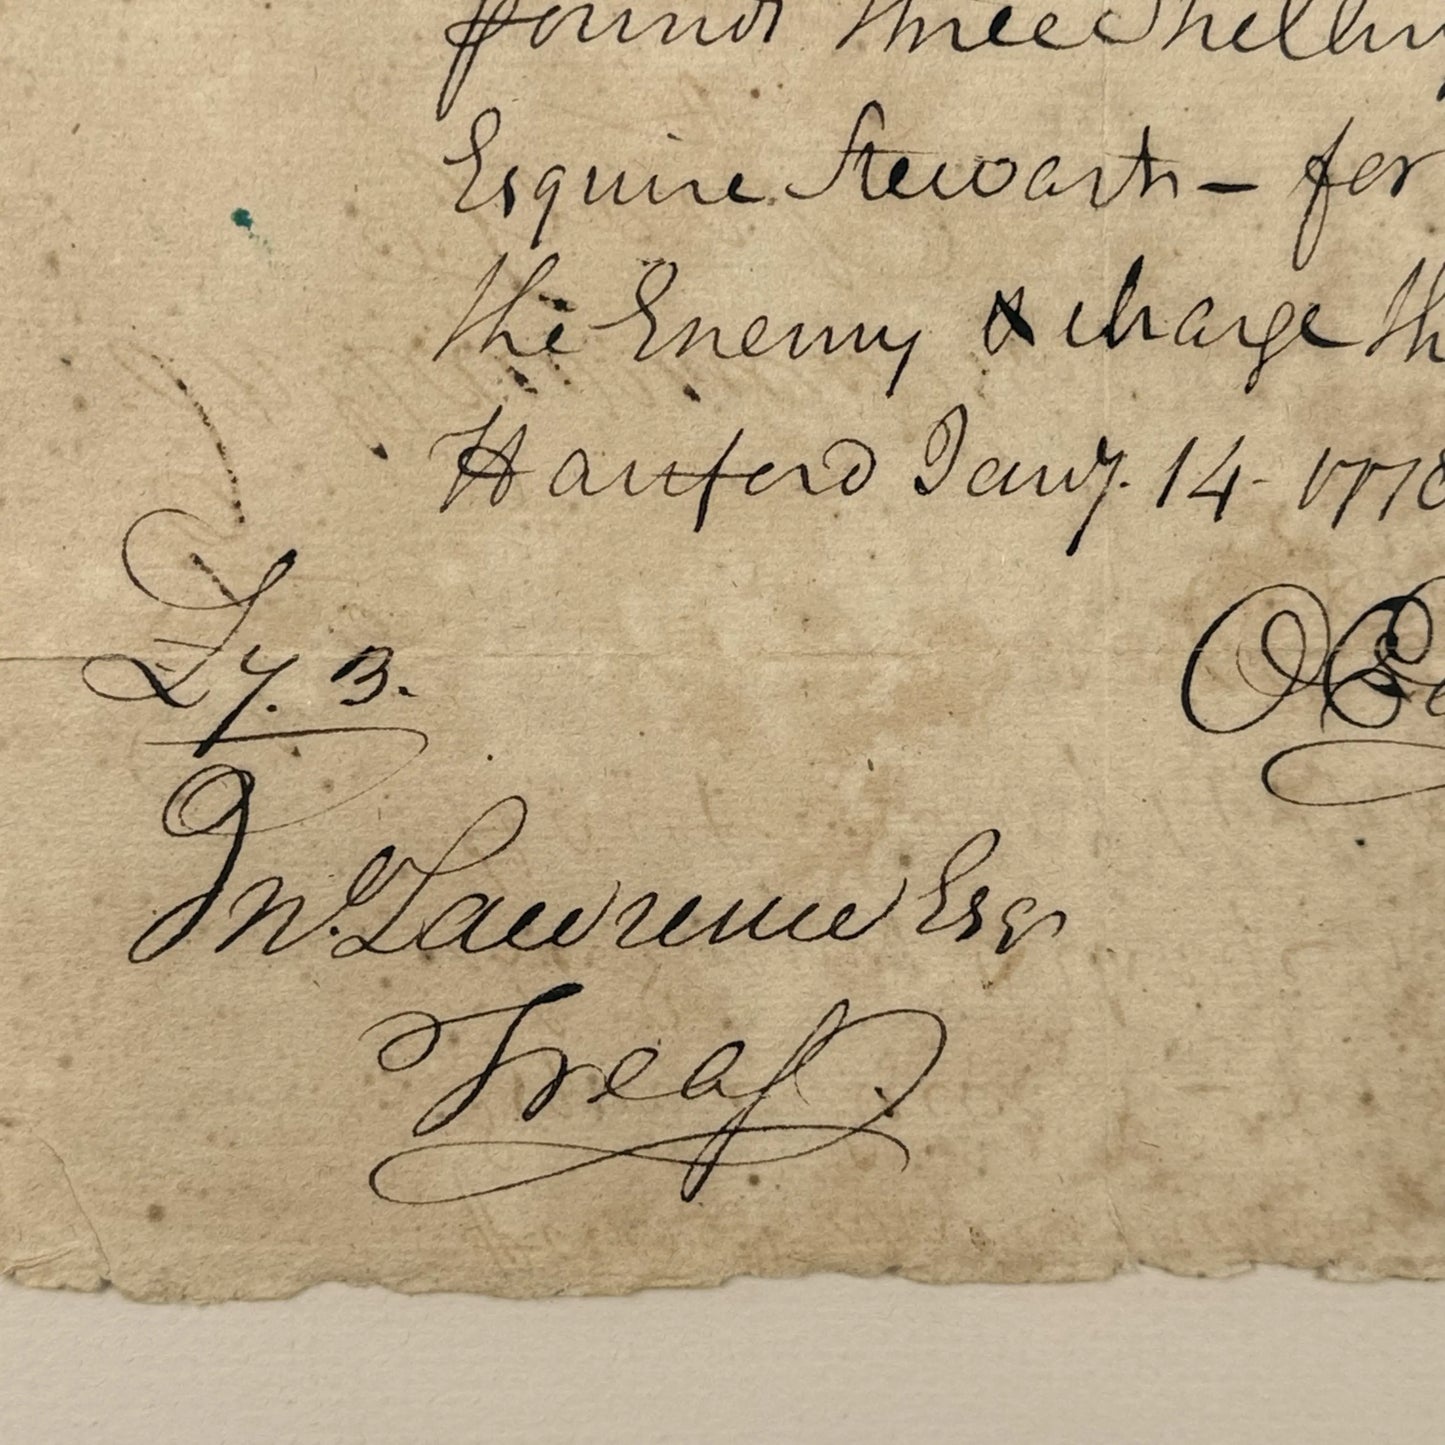 pound three Shelling
Esquire Stewarts – for
the Enemy & charge th
Hartford Jany. 14 - 1778
Ly. 3.
Jno. Lawrence Esqr
Treasr.